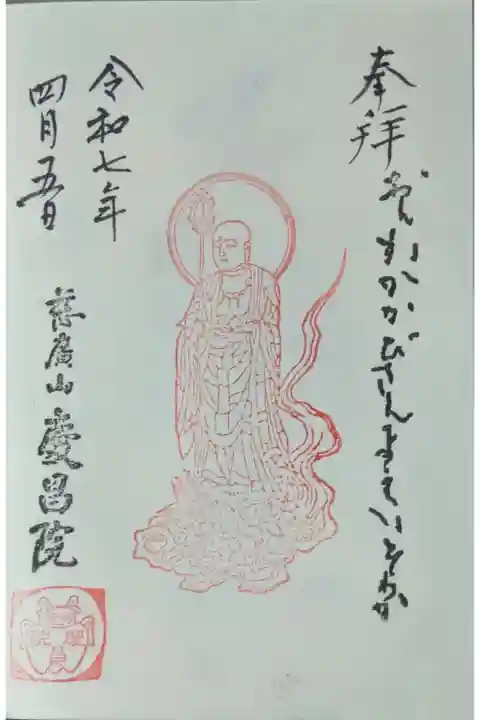 奉拝 おんかかかびさんまえいそわか
令和七年
四月五日
慈廣山 慶昌院